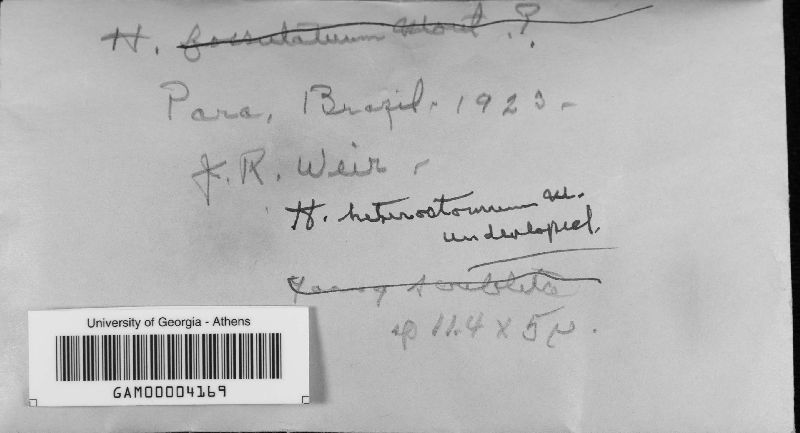 H. ?
Para, Brazil. 1923 -
J. R. Weir -
H. heterostomum
undeveloped.
Young
sp 11.4 x 5 µ.
University of Georgia - Athens
GAM00004169